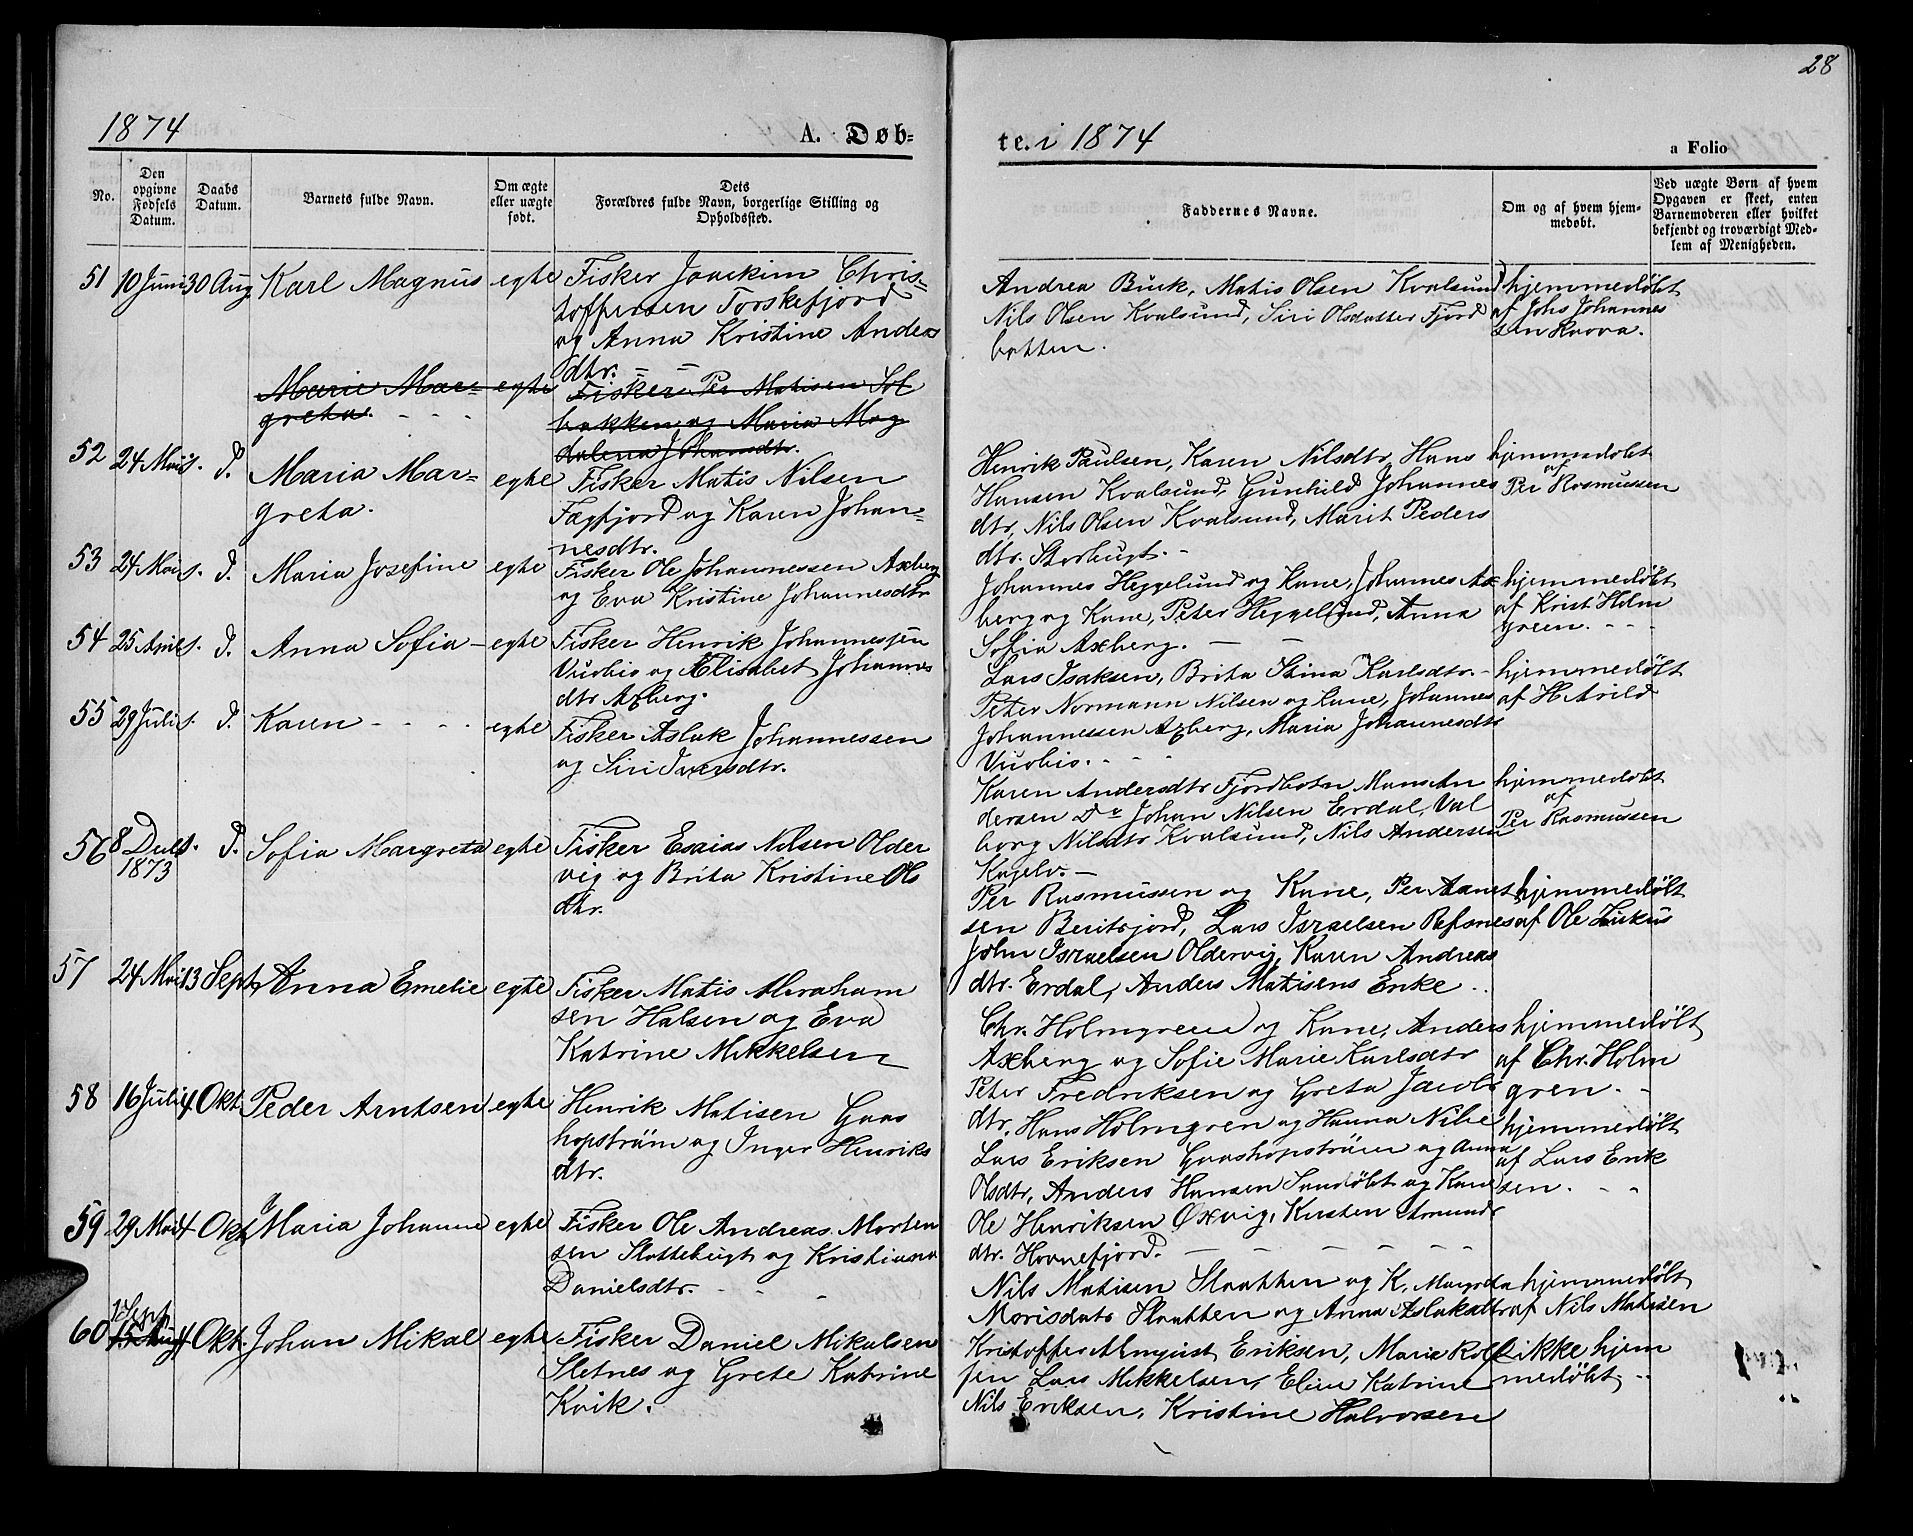 28
1874
A. Døb-
te. i 1874
a Folio
No.
Den opgivne Fødsels Datum.
Daabs Datum.
Barnets fulde Navn.
Om ægte eller uægte født.
Dets
Forældres fulde Navn, borgerlige Stilling og
Opholdssted.
Faddernes Navne.
Om og af hvem hjem-
medøbt.
Ved uægte Børn af hvem
Opgaven er skeet, enten
Barnemoderen eller hvilket
bekjendt og troværdigt Med-
lem af Menigheden.
51 10 Juni 30 Aug Karl Magnus egte Fisker Joackim Chris-
toffersen Torskefjord
og Anna Kristine Anders
dtr. - -
Andrea Buck, Matis Olsen Kvalsund
Nils Olsen Kvalsund, Siri Olsdatter Fjord
botten.
hjemmedøbt
af Johs Johannes
sen
Marie Mar- egte Fisker Per Matisen Sol
greta. - - - bakken og Maria Mag
dalena Johansdtr.
52 24 Mai s. D. Maria Mar- egte Fisker Matis Nilsen
greta. Fægfjord og Karen Johan-
nesdtr.
Henrik Paulsen, Karen Nilsdtr, Hans
Hansen Kvalsund, Gunhild Johannes
dtr, Nils Olsen Kvalsund, Marit Peders
dtr. Storbugt. -
hjemmedøbt
af
Per Rasmussen
53 24 Mai s. D. Maria Josefine egte Fisker Ole Johannessen Axberg
og Eva Kristine Johannesdtr
Johannes Heggelund og Kone, Johannes Ax
berg og Kone, Peter Heggelund, Anna
Sofia Axberg. - -
hjemmedøbt
af Krist Holm
green. - - -
54 25 April s. D. Anna Sofia - egte Fisker Henrik Johannessen
Vuobio og Elisabet Johannes
dtr Axberg.
Lars Isaksen, Brita Stina Karlsdtr. -
Peter Normann Nilsen og Kone, Johannes
Johannessen Axberg, Maria Johannesdtr
Vuobio. - - -
hjemmedøbt
af H Arild
55 29 Juli s. D. Karen - - - - egte Fisker Aslak Johannessen
og Siri Iversdtr.
Karen Andersdtr Fjordbotn, Mans An
dersen Do Johan Nilsen Erdal, Val
borg Nilsdtr Kvalsund, Nils Andersen
hjemmedøbt
af
Per Rasmussen
56 8 Decb s. D. Sofia Margreta egte Fisker Esaias Nilsen Older
1873 vig og Brita Kristine Ols
dtr.
Per Rasmussen og Kone, Per Arnt
sen Beritsjord, Lars Israelsen Refsnes
John Israelsen Oldervig, Karen Andreas
dtr. Erdal, Anders Matisens Enke ..
hjemmedøbt
af Ole
57 24 Mai 13 Sept Anna Emelie egte Fisker Matis Abraham
sen Halsen og Eva
Katrine Mikkelsen
Chr. Holmgreen og Kone, Anders
Axberg og Sofie Marie Karlsdtr
Peter Fredriksen og Greta Jacobs
dtr, Hans Holmgren og Hanna
hjemmedøbt
af Chr. Holm
gren. - -
58 16 Juli 4 Okt. Peder Arntsen egte Henrik Matisen Gaas
hopstrøm og Inger Henriks
dtr.
Lars Eriksen Gaashopstrøm og Anna
Olsdtr, Anders Hansen og Kone
Ole Henriksen Øxvig, Kirsten Amunds
dtr. - - - - - -
hjemmedøbt
af Lars Erik
sen. - -
59 29 Mai 4 Okt Maria Johanne egte Fisker Ole Andreas Morten
sen Slottebugt og Kristiana
Danielsdtr. - - -
Nils Matisen Slaatten og K. Margreta
Morisdatr Slaatten og Anna Aslaksdtr
hjemmedøbt
af Nils Matisen
1 Sept
60 15 Aug 4 Okt. Johan Mikal egte Fisker Daniel Mikalsen
Sletnes og Grete Katrine
Kvik.
Kristoffer Almquist Eriksen, Marie
Lars Mikkelsen, Eline Katrine
Nils Eriksen, Kristine Halvorsen
ikke hjem
medøbt. -